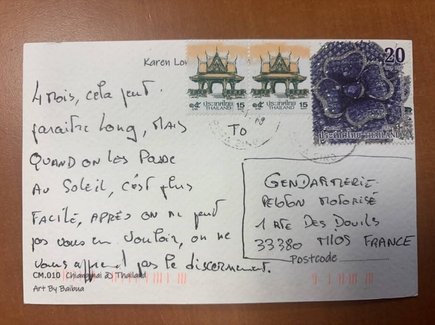 Karen Lon
20
15 ประเทศไทย THAILAND 15
15 ประเทศไทย THAILAND 15
ประเทศไทย THAILAND
To
4 MOIS, cela peut
paraître Long, MAIS
QUAND ON LES PASSE
AU SOLEIL, C'est plus
FACILE, APRÈS ON ne peut
pas vous en vouloir, on ne
vous apprend pas le discernement.
GENDARMERIE
PELOTON MOTORISÉ
1 RTE DES DOUILS
33380 MIOS FRANCE
Postcode
CM.010 Chiangmai Thailand
Art By Baibua